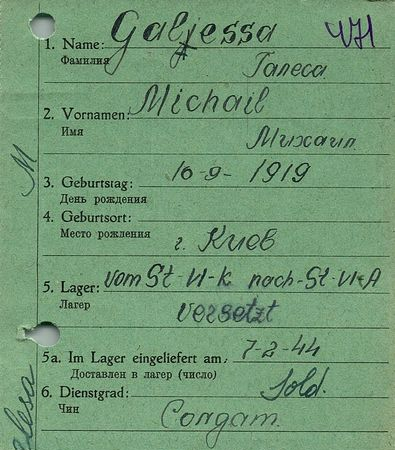 1. Name: Galjessa VI/1
Фамилия Галеса
2. Vornamen: Michail
Имя Михаил
M
3. Geburtstag: 10-9-1919
День рождения
4. Geburtsort:
Место рождения г. Киев
5. Lager: vom St-VI-K nach-St-VI-A
Лагер versetzt
5a. Im Lager eingeliefert am: 7-2-44
Доставлен в лагер (число)
6. Dienstgrad: Sold.
Чин